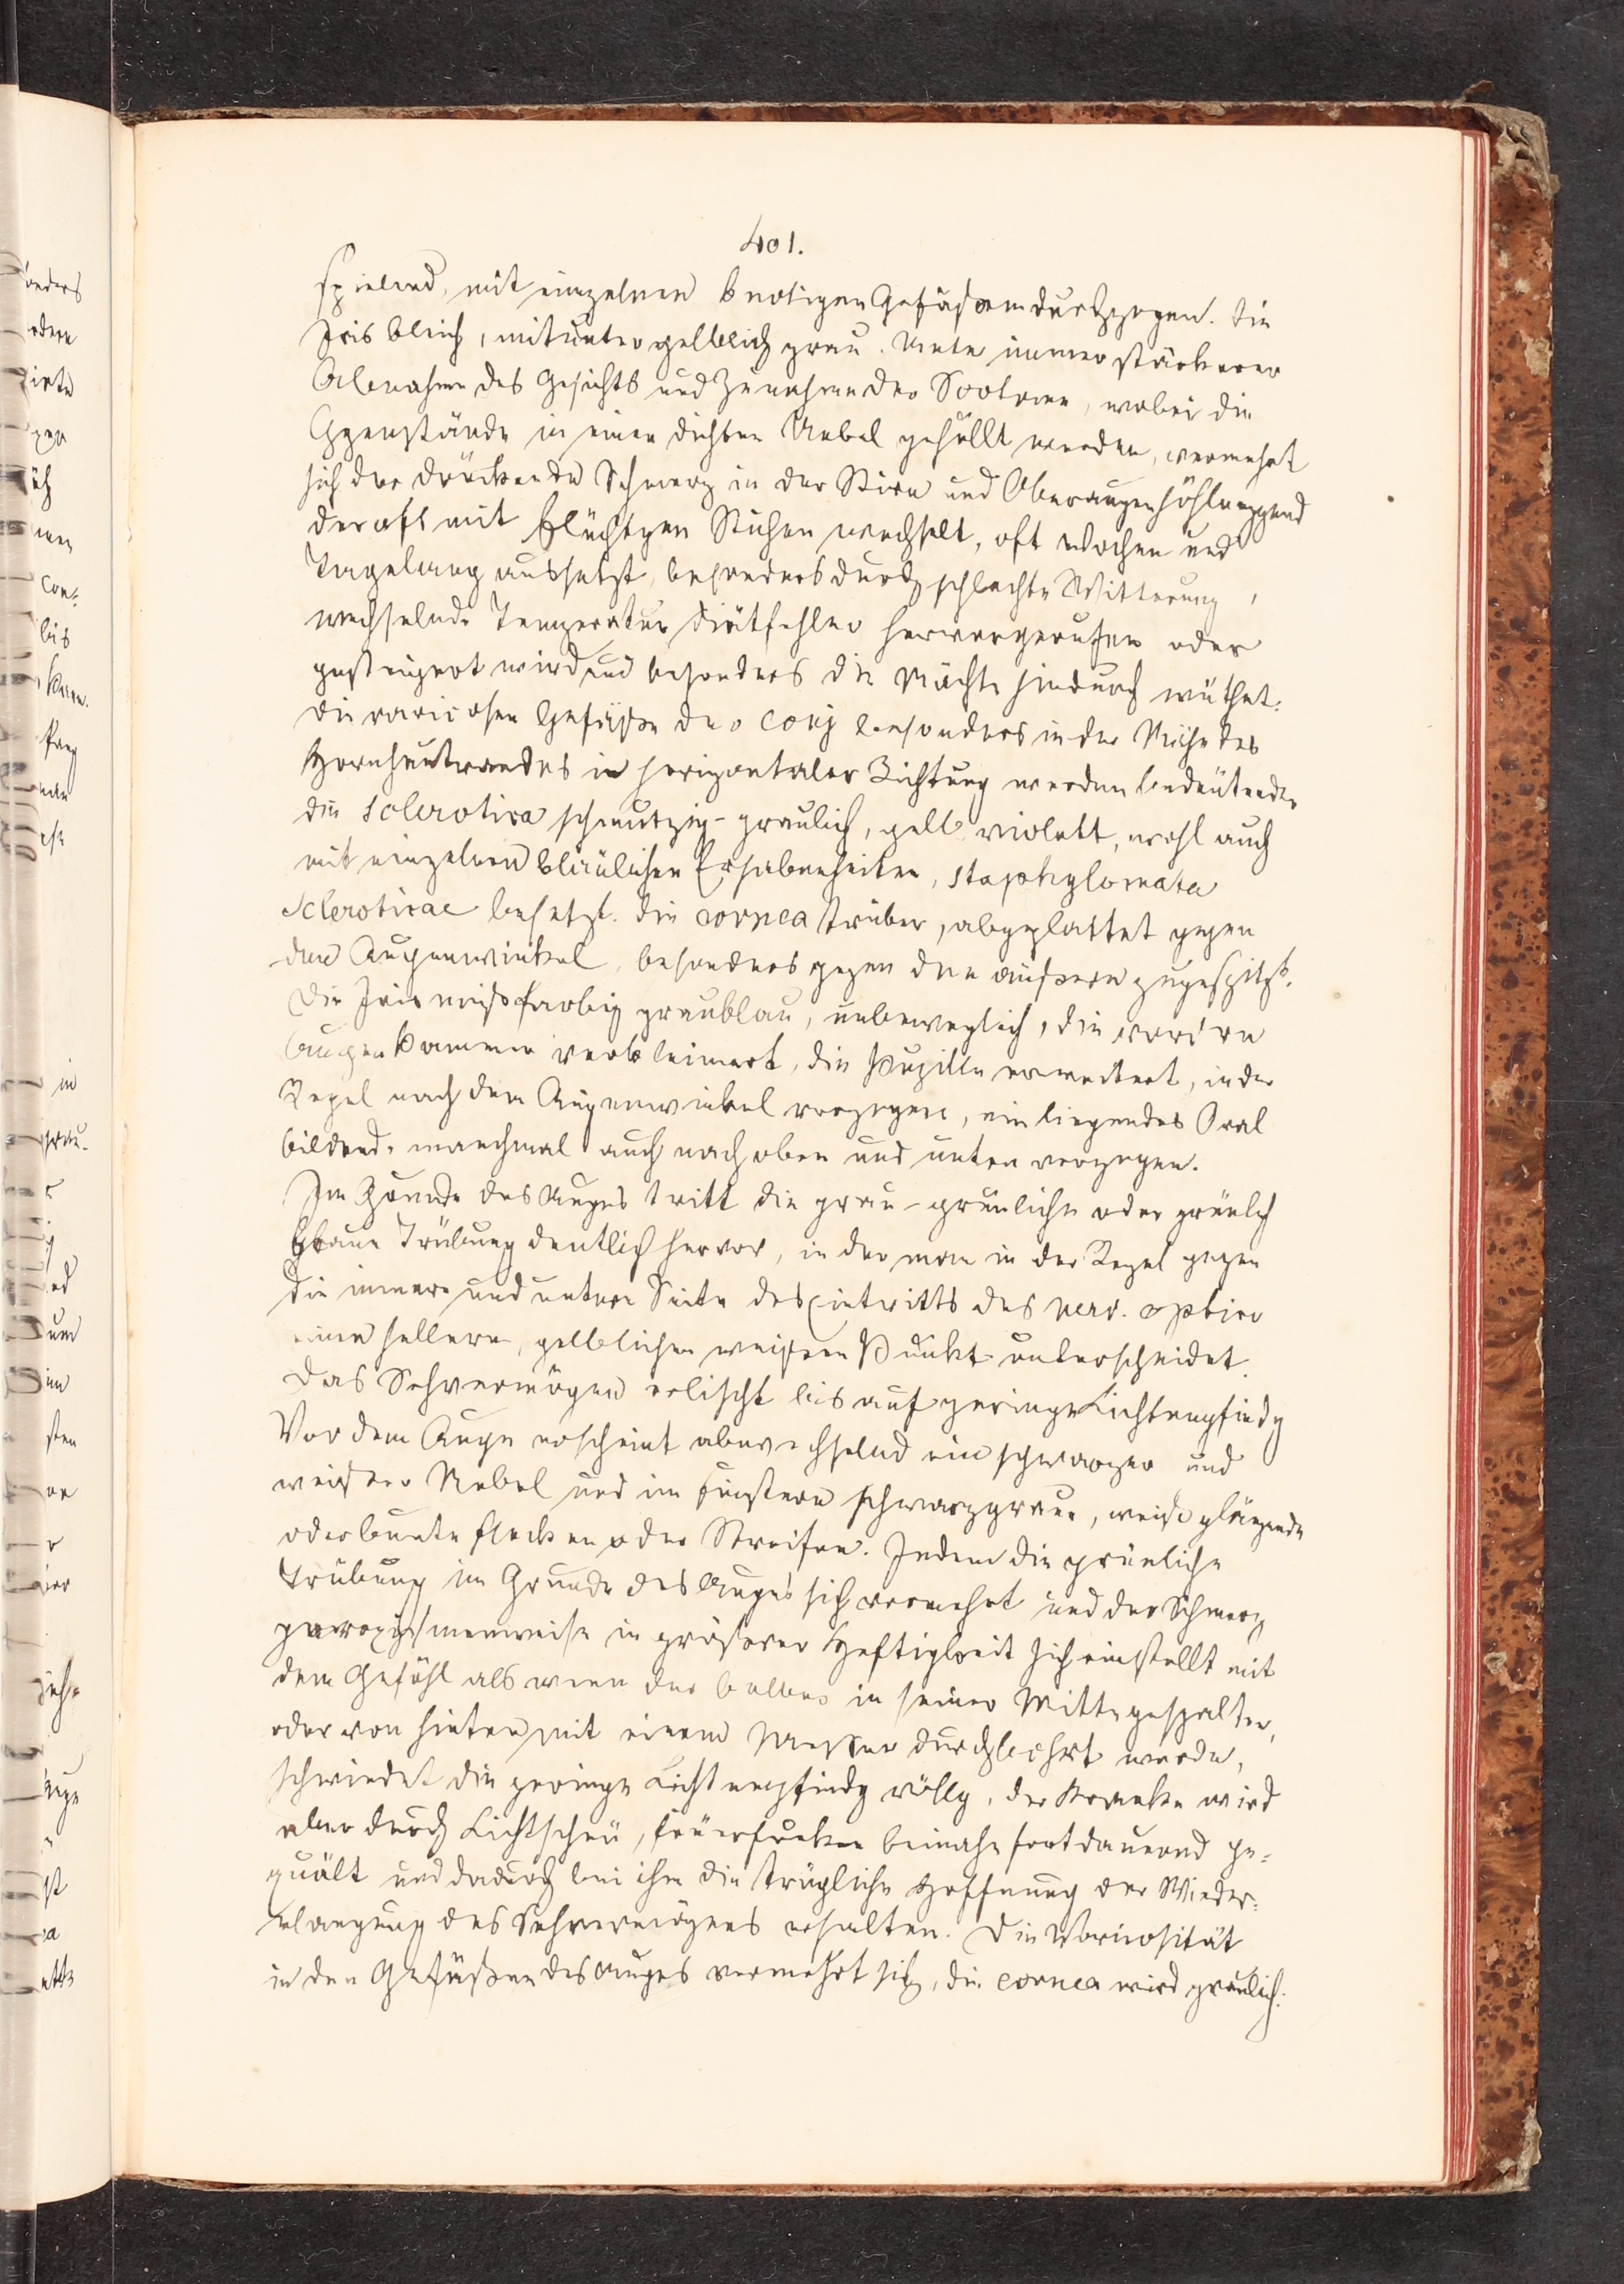 401.
spielend, mit einzelnen knotigen Gefäßen durchzogen. Die
Iris bleich, mitunter gelblich grau. Unter immer stärkerer
Abnahme des Gesichts und Zunahme der Scotome, wobei die
Ggenstände in einen dichten Nebel gehüllt werden, vermehrt
sich der drückende Schmerz in der Stirn und Oberaugenhöhlenggend
der oft mit flüchtgen Stichen wechselt, oft Wochen und
Tagelang aussetzt, besonders durch schlechte Witterung,
wechselnde Temperatur Diätfehler hervorgerufen oder
gesteigert wird und besonders die Nächte hindurch wüthet.
Die varicosen Gefäße der conj besonders in der Nähe des
Hornhautrandes in horizontaler Richtung werden bedeutender
die Sclerotica schmutzig-graulich, gelb violett, wohl auch
mit einzelnen bläulichen Erhabenheiten, staphylomata
Scleroticae besetzt. Die cornea trüber, abgeplattet gegen
den Augenwinkel, besonders gegen den äußern zugespitzt.
Die Iris mißfarbig graublau, unbeweglich, die vordre
Augenkammer verkleinert, die Pupille erweitert, in der
Regel nach dem Augenwinkel verzogen, ein liegendes Oval
bildend, manchmal auch nach oben und unten verzogen.
Im Grunde des Auges tritt die grau-grünliche oder grünlch
graue Trübung deutlich hervor, in der man in der Regel gegen
die innere und untere Seite des Eintritts des nerv. optici
einen hellern, gelblichen weißen Punkt unterscheidet.
Das Sehvermögen erlischt bis auf geringe Lichtempfindg
Vor dem Auge erscheint abwechselnd ein schwarzer und
weißer Nebel und im Finstern schwarzgraue, weiße glänzende
oder bunte Flecken oder Streifen. Indem die grünliche
Trübung im Grunde des Auges sich vermehrt und der Schmerz
paroxysmenweise in größerer Heftigkeit sich einstellt mit
dem Gefühl als wenn der bulbus in seiner Mitte gespalten,
oder von hinten mit einem Messer durchbohrt werde,
schwindet die geringe Lichtempfindg völlg, der Kranke wird
aber durch Lichtscheu, Feuerfunken beinahe fortdauernd ge-
quält und dadurch bei ihm die trügliche Hoffnung der Wieder-
erlangung des Sehvermögens erhalten. Die Varicosität
in den Gefäßen des Auges vermehrt sich, die cornea wird graulich.